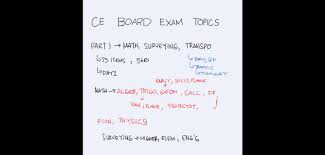 CE BOARD EXAM TOPICS
PART 1 → MATH, SURVEYING, TRANSPO
↳ 55 ITEMS, 5HRS
↳ DESIGN
↳ TRAFFIC
↳ DAY 1
ANALY, SOLID, PLANE
MATH → ALGEB, TRIGO, GEOM, CALC, DE
PLANE, PROBSTAT,
ECON, PHYSICS
SURVEYING → HIGHER, ELEM, ENG'G